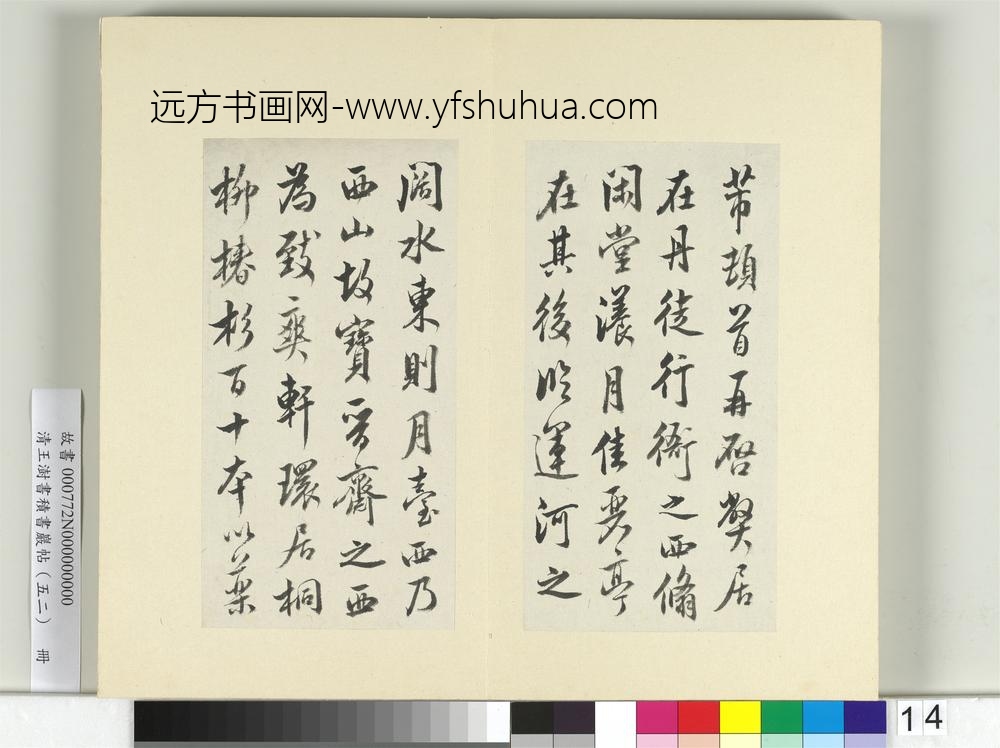 远方书画网-www.yfshuhua.com
芾頓首再啓弊居
在丹徒行衙之西翛
閑堂漾月佳麗亭
在其後臨運河之
闊水東則月臺西乃
西山故寶晉齋之西
為致爽軒環居桐
柳椿杉百十本以藥
故書 000772N000000000
清王澍書積書巖帖（五二） 冊
14